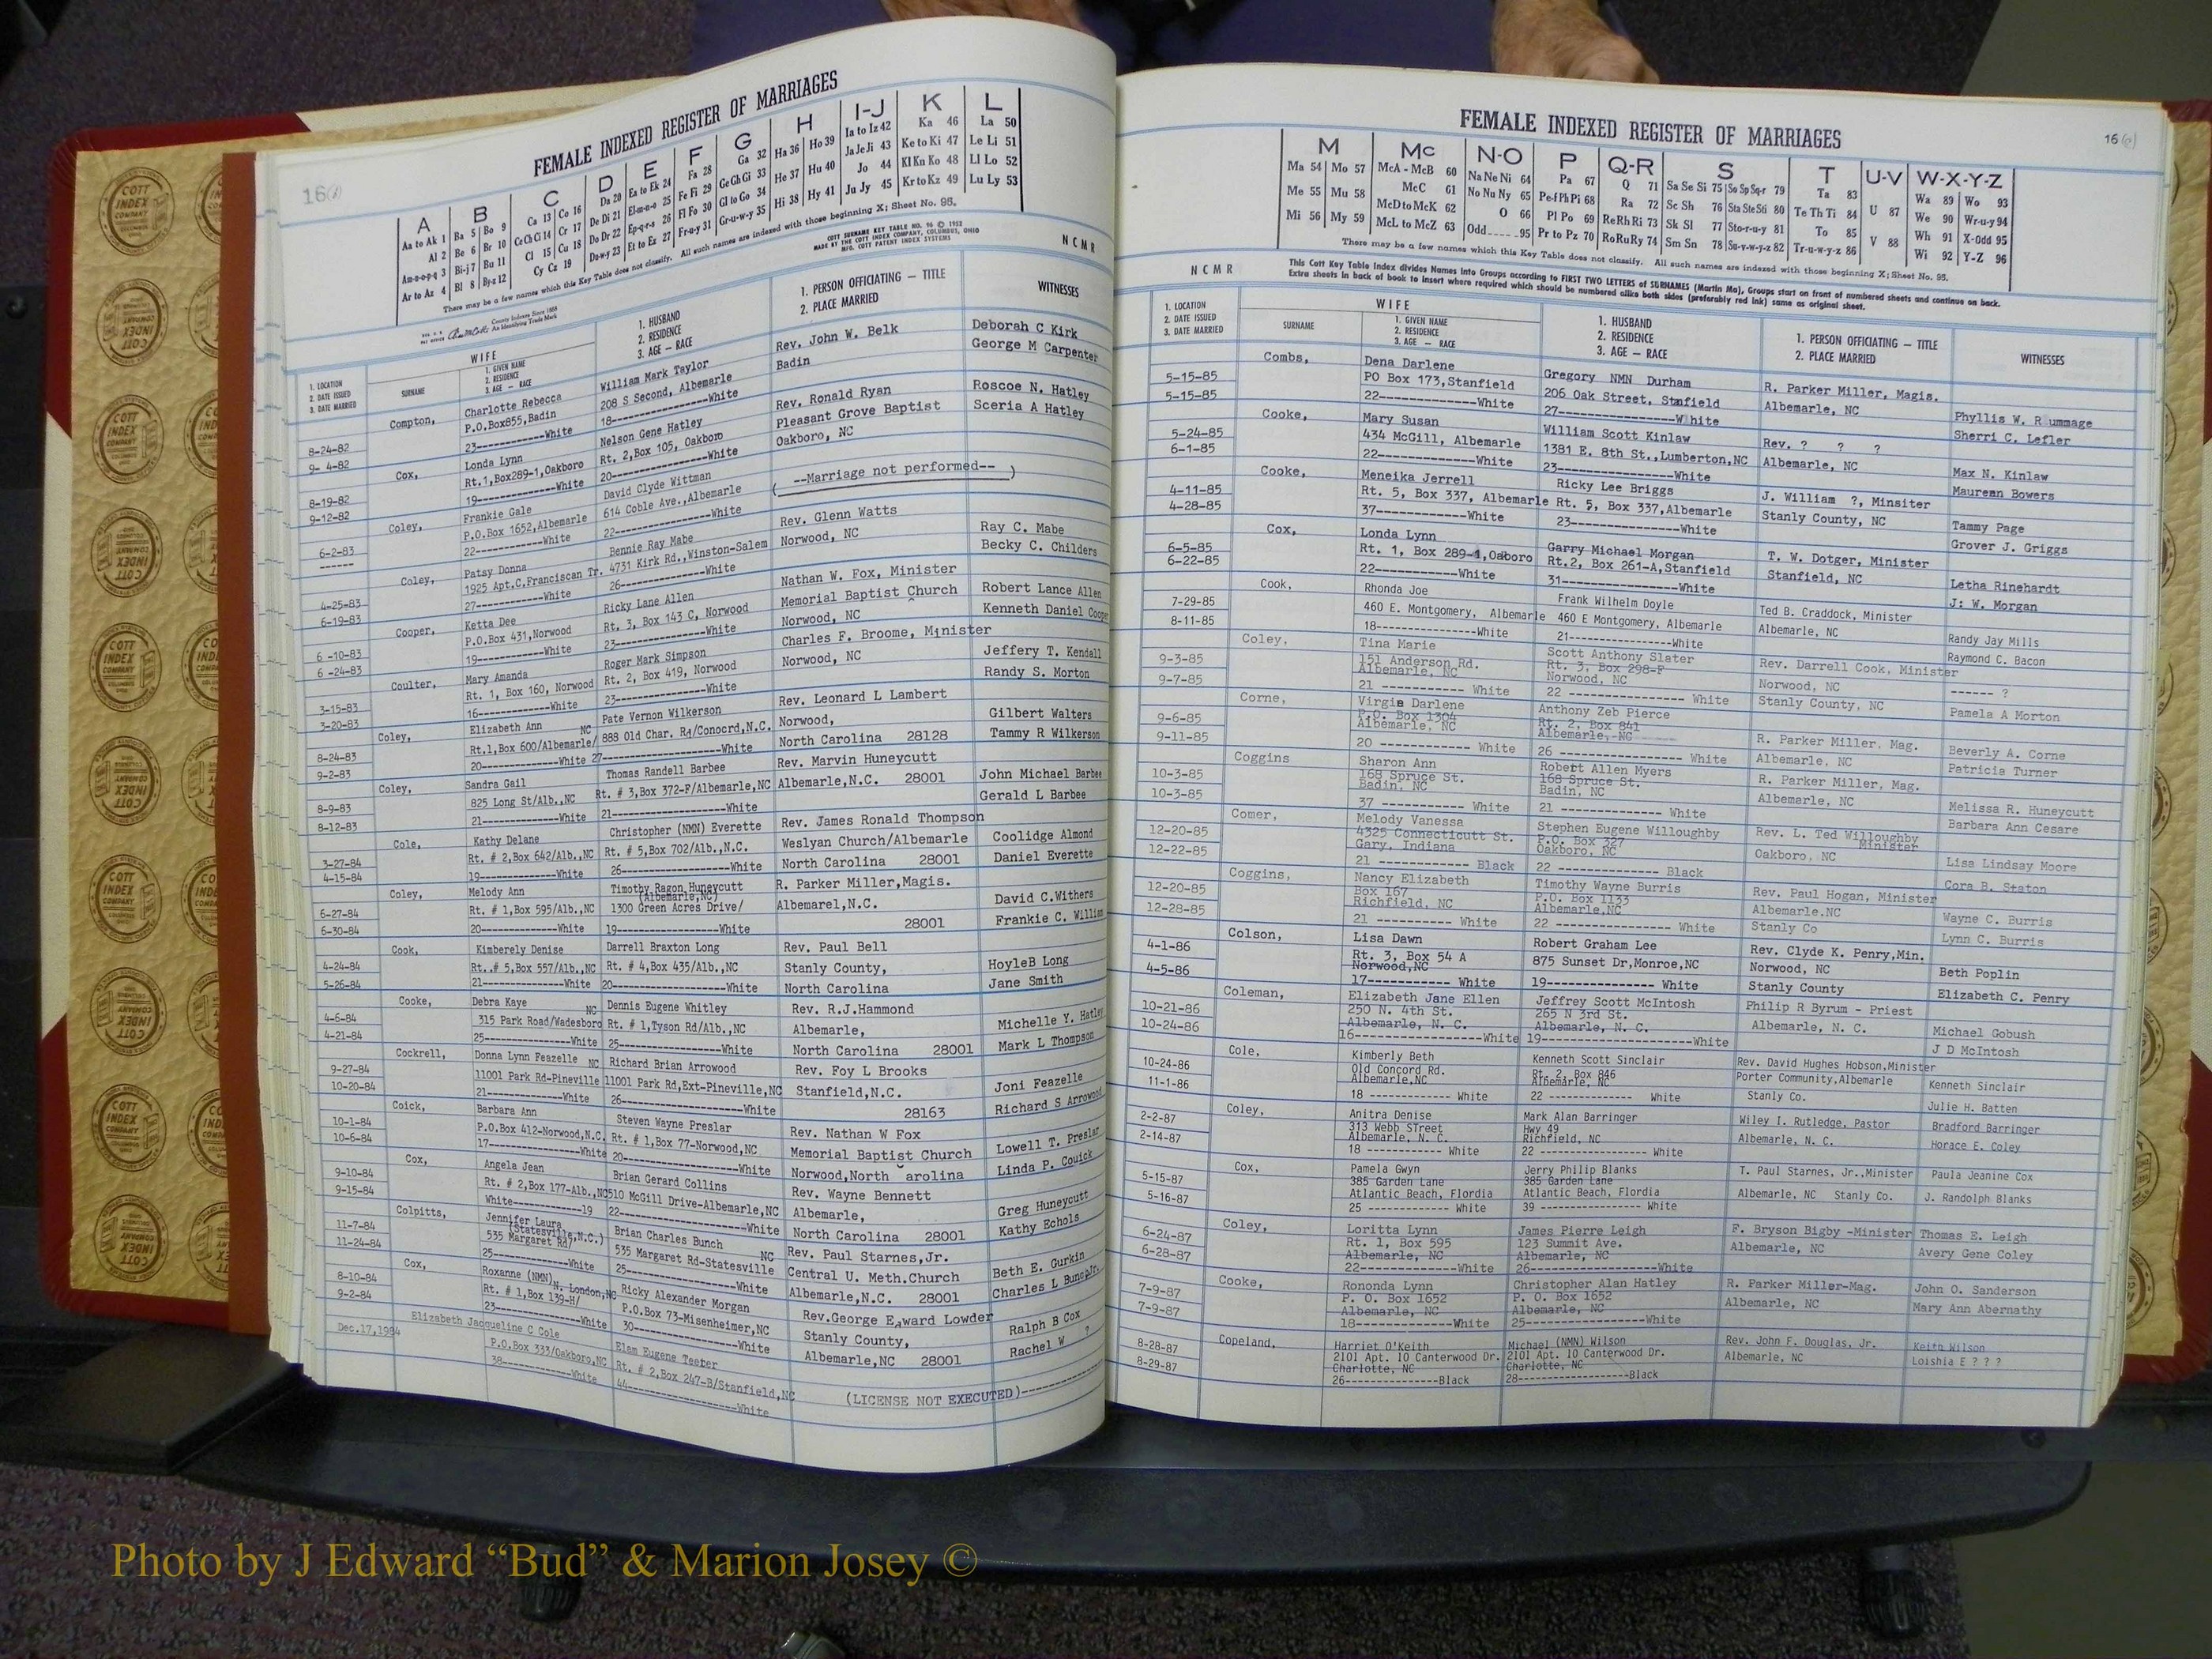 16
FEMALE INDEXED REGISTER OF MARRIAGES
A B C D E F G H I-J K L
Aa to Ak 1 Ba 5 Bo 9 Ca 13 Co 16 Da 20 Ea to Ek 24 Fa 28 Ga 32 Ha 36 Ho 39 Ia to Iz 42 Ka 46 La 50
Al 2 Be 6 Br 10 Ce Ch Ci 14 Cr 17 De Di 21 El-m-n-o 25 Fe Fi 29 Ge Gh Gi 33 He 37 Hu 40 Ja Je Ji 43 Ke to Ki 47 Le Li 51
Am-n-o-p-q 3 Bi-j 7 Bu 11 Cl 15 Cu 18 Do Dr 22 Ep-q-r-s 26 Fl Fo 30 Gl to Go 34 Hi 38 Hy 41 Jo 44 Kl Kn Ko 48 Ll Lo 52
Ar to Az 4 Bl 8 By-z 12 Cy Cz 19 Du-w-y 23 Et to Ez 27 Fr-u-y 31 Gr-u-w-y 35 Ju Jy 45 Kr to Kz 49 Lu Ly 53
There may be a few names which this Key Table does not classify. All such names are indexed with those beginning X; Sheet No. 95.
COTT SURNAME KEY TABLE NO. 96 © 1952
MADE BY THE COTT INDEX COMPANY, COLUMBUS, OHIO
MFG. COTT PATENT INDEX SYSTEMS
County Indexes Since 1888
An Identifying Trade Mark
NCMR
1. LOCATION
2. DATE ISSUED
3. DATE MARRIED
WIFE
SURNAME
1. GIVEN NAME
2. RESIDENCE
3. AGE — RACE
1. HUSBAND
2. RESIDENCE
3. AGE — RACE
1. PERSON OFFICIATING — TITLE
2. PLACE MARRIED
WITNESSES
Compton, Charlotte Rebecca William Mark Taylor Rev. John W. Belk Deborah C Kirk
8-24-82 P.O.Box855,Badin 208 S Second, Albemarle Badin George M Carpenter
9- 4-82 23------------White 18------------------White
Cox, Londa Lynn Nelson Gene Hatley Rev. Ronald Ryan Roscoe N. Hatley
8-19-82 Rt.1,Box289-1,Oakboro Rt. 2,Box 105, Oakboro Pleasant Grove Baptist Sceria A Hatley
9-12-82 19--------------White 20------------------White Oakboro, NC
Coley, Frankie Gale David Clyde Wittman
6-2-83 P.O.Box 1652,Albemarle 614 Coble Ave.,Albemarle (--Marriage not performed--)
------ 22------------White 22------------------White
Coley, Patsy Donna Bennie Ray Mabe Rev. Glenn Watts Ray C. Mabe
4-25-83 1925 Apt.C,Franciscan Tr. 4731 Kirk Rd.,Winston-Salem Norwood, NC Becky C. Childers
6-19-83 27--------------White 26----------------White
Cooper, Ketta Dee Ricky Lane Allen Nathan W. Fox, Minister Robert Lance Allen
6 -10-83 P.O.Box 431,Norwood Rt. 3, Box 143 C, Norwood Memorial Baptist Church Kenneth Daniel Cooper
6 -24-83 19--------------White 23----------------White Norwood, NC
Coulter, Mary Amanda Roger Mark Simpson Charles F. Broome, Minister Jeffery T. Kendall
3-15-83 Rt. 1, Box 160, Norwood Rt. 2, Box 419, Norwood Norwood, NC Randy S. Morton
3-20-83 16--------------White 23----------------White
Coley, Elizabeth Ann Pate Vernon Wilkerson Rev. Leonard L Lambert Gilbert Walters
8-24-83 Rt.1,Box 600/Albemarle/NC 888 Old Char. Rd/Conocrd,N.C. Norwood, Tammy R Wilkerson
9-2-83 20--------------White 27--------------------White North Carolina 28128
Coley, Sandra Gail Thomas Randell Barbee Rev. Marvin Huneycutt John Michael Barbee
8-9-83 825 Long St/Alb.,NC Rt. # 3,Box 372-F/Albemarle,NC Albemarle,N.C. 28001 Gerald L Barbee
8-12-83 21--------------White 21------------------White
Cole, Kathy Delane Christopher (NMN) Everette Rev. James Ronald Thompson Coolidge Almond
3-27-84 Rt. # 2,Box 642/Alb.,NC Rt. # 5,Box 702/Alb.,N.C. Weslyan Church/Albemarle Daniel Everette
4-15-84 19--------------White 26------------------White North Carolina 28001
Coley, Melody Ann Timothy Ragon Huneycutt R. Parker Miller,Magis. David C.Withers
6-27-84 Rt. # 1,Box 595/Alb.,NC 1300 Green Acres Drive/ (Albemarle,NC) Albemarel,N.C. Frankie C. William
6-30-84 20--------------White 19------------------White 28001
Cook, Kimberely Denise Darrell Braxton Long Rev. Paul Bell HoyleB Long
4-24-84 Rt..# 5,Box 557/Alb.,NC Rt. # 4,Box 435/Alb.,NC Stanly County, Jane Smith
5-26-84 21--------------White 20------------------White North Carolina
Cooke, Debra Kaye Dennis Eugene Whitley Rev. R.J.Hammond Michelle Y. Hatley
4-6-84 315 Park Road/Wadesboro NC Rt. # 1,Tyson Rd/Alb.,NC Albemarle, Mark L Thompson
4-21-84 25--------------White 25------------------White North Carolina 28001
Cockrell, Donna Lynn Feazelle Richard Brian Arrowood Rev. Foy L Brooks Joni Feazelle
9-27-84 11001 Park Rd-Pineville NC 11001 Park Rd,Ext-Pineville,NC Stanfield,N.C. Richard S Arrowood
10-20-84 21--------------White 26------------------White 28163
Coick, Barbara Ann Steven Wayne Preslar Rev. Nathan W Fox Lowell T. Preslar
10-1-84 P.O.Box 412-Norwood,N.C. Rt. # 1,Box 77-Norwood,NC Memorial Baptist Church Linda P. Couick
10-6-84 17----------------White 20------------------White Norwood,North arolina
Cox, Angela Jean Brian Gerard Collins Rev. Wayne Bennett Greg Huneycutt
9-10-84 Rt. # 2,Box 177-Alb.,NC 510 McGill Drive-Albemarle,NC Albemarle, Kathy Echols
9-15-84 White------------19 22------------------White North Carolina 28001
Colpitts, Jennifer Laura Brian Charles Bunch Rev. Paul Starnes,Jr. Beth E. Gurkin
11-7-84 535 Margaret Rd/ (Statesville,N.C.) 535 Margaret Rd-Statesville NC Central U. Meth.Church Charles L Bunch,Jr.
11-24-84 25--------------White 25------------------White Albemarle,N.C. 28001
Cox, Roxanne (NMN) Ricky Alexander Morgan Rev.George Edward Lowder Ralph B Cox
8-10-84 Rt. # 1,Box 139-H/ N. London,NC P.O.Box 73-Misenheimer,NC Stanly County, Rachel W ?
9-2-84 23--------------White 30------------------White Albemarle,NC 28001
Elizabeth Jacqueline C Cole Elam Eugene Teeter
Dec.17,1984 P.O.Box 333/Oakboro,NC Rt. # 2,Box 247-B/Stanfield,NC (LICENSE NOT EXECUTED)--------------
38--------------White 44------------------White
FEMALE INDEXED REGISTER OF MARRIAGES
16
M Mc N-O P Q-R S T U-V W-X-Y-Z
Ma 54 Mo 57 McA - McB 60 Na Ne Ni 64 Pa 67 Q 71 Sa Se Si 75 So Sp Sq-r 79 Ta 83 U 87 Wa 89 Wo 93
Me 55 Mu 58 McC 61 No Nu Ny 65 Pe-f Ph Pi 68 Ra 72 Sc Sh 76 Sta Ste Sti 80 Te Th Ti 84 V 88 We 90 Wr-u-y 94
Mi 56 My 59 McD to McK 62 O 66 Pl Po 69 Re Rh Ri 73 Sk Sl 77 Sto-r-u-y 81 To 85 Wh 91 X-Odd 95
McL to McZ 63 Odd.....95 Pr to Pz 70 Ro Ru Ry 74 Sm Sn 78 Su-v-w-y-z 82 Tr-u-w-y-z 86 Wi 92 Y-Z 96
There may be a few names which this Key Table does not classify. All such names are indexed with those beginning X; Sheet No. 95.
This Cott Key Table Index divides Names into Groups according to FIRST TWO LETTERS of SURNAMES (Martin Ma), Groups start on front of numbered sheets and continue on back.
Extra sheets in back of book to insert where required which should be numbered alike both sides (preferably red ink) same as original sheet.
NCMR
1. LOCATION
2. DATE ISSUED
3. DATE MARRIED
WIFE
SURNAME
1. GIVEN NAME
2. RESIDENCE
3. AGE — RACE
1. HUSBAND
2. RESIDENCE
3. AGE — RACE
1. PERSON OFFICIATING — TITLE
2. PLACE MARRIED
WITNESSES
Combs, Dena Darlene Gregory NMN Durham R. Parker Miller, Magis. Phyllis W. Rummage
5-15-85 PO Box 173,Stanfield 206 Oak Street, Stanfield Albemarle, NC Sherri C. Lefler
5-15-85 22--------------White 27----------------White
Cooke, Mary Susan William Scott Kinlaw Rev. ? ? ? Max N. Kinlaw
5-24-85 434 McGill, Albemarle 1381 E. 8th St.,Lumberton,NC Albemarle, NC Maureen Bowers
6-1-85 22--------------White 23----------------White
Cooke, Meneika Jerrell Ricky Lee Briggs J. William ?, Minsiter Tammy Page
4-11-85 Rt. 5, Box 337, Albemarle Rt. 5, Box 337,Albemarle Stanly County, NC Grover J. Griggs
4-28-85 37------------White 23----------------White
Cox, Londa Lynn Garry Michael Morgan T. W. Dotger, Minister Letha Rinehardt
6-5-85 Rt. 1, Box 289-1,Oaboro Rt.2, Box 261-A,Stanfield Stanfield, NC J: W. Morgan
6-22-85 22------------White 31----------------White
Cook, Rhonda Joe Frank Wilhelm Doyle Ted B. Craddock, Minister Randy Jay Mills
7-29-85 460 E. Montgomery, Albemarle 460 E Montgomery, Albemarle Albemarle, NC Raymond C. Bacon
8-11-85 18--------------White 21----------------White
Coley, Tina Marie Scott Anthony Slater Rev. Darrell Cook, Minister ------ ?
9-3-85 151 Anderson Rd. Rt. 3, Box 298-F Norwood, NC Pamela A Morton
9-7-85 Albemarle, NC Norwood, NC Stanly County, NC
21 ------------ White 22 ---------------- White
Corne, Virgie Darlene Anthony Zeb Pierce R. Parker Miller, Mag. Beverly A. Corne
9-6-85 P.O. Box 1304 Rt. 2, Box 841 Albemarle, NC Patricia Turner
9-11-85 Albemarle, NC Albemarle, NC
20 ------------- White 26 ---------------- White
Coggins Sharon Ann Robert Allen Myers R. Parker Miller, Mag. Melissa R. Huneycutt
10-3-85 168 Spruce St. 168 Spruce St. Albemarle, NC Barbara Ann Cesare
10-3-85 Badin, NC Badin, NC
37 ------------ White 21 ------------- White
Comer, Melody Vanessa Stephen Eugene Willoughby Rev. L. Ted Willoughby Minister Lisa Lindsay Moore
12-20-85 4325 Connecticutt St. P.O. Box 327 Oakboro, NC Cora B. Staton
12-22-85 Gary, Indiana Oakboro, NC
21 ------------- Black 22 -------------- Black
Coggins, Nancy Elizabeth Timothy Wayne Burris Rev. Paul Hogan, Minister Wayne C. Burris
12-20-85 Box 167 P.O. Box 1133 Albemarle.NC Lynn C. Burris
12-28-85 Richfield, NC Albemarle,NC Stanly Co
21 ----------- White 22 ---------------- White
Colson, Lisa Dawn Robert Graham Lee Rev. Clyde K. Penry,Min. Beth Poplin
4-1-86 Rt. 3, Box 54 A 875 Sunset Dr,Monroe,NC Norwood, NC Elizabeth C. Penry
4-5-86 Norwood,NC Stanly County
17----------- White 19--------------- White
Coleman, Elizabeth Jane Ellen Jeffrey Scott McIntosh Philip R Byrum - Priest Michael Gobush
10-21-86 250 N. 4th St. 265 N 3rd St. Albemarle, N. C. J D McIntosh
10-24-86 Albemarle, N. C. Albemarle, N. C.
16-----------------White 19-------------------White
Cole, Kimberly Beth Kenneth Scott Sinclair Rev. David Hughes Hobson,Minister Kenneth Sinclair
10-24-86 Old Concord Rd. Rt. 2, Box 846 Porter Community,Albemarle Julie H. Batten
11-1-86 Albemarle,NC Albemarle, NC Stanly Co.
18 ------------ White 22 ------------- White
Coley, Anitra Denise Mark Alan Barringer Wiley I. Rutledge, Pastor Bradford Barringer
2-2-87 313 Webb STreet Hwy 49 Albemarle, N. C. Horace E. Coley
2-14-87 Albemarle, N. C. Richfield, NC
18 ------------ White 22 -------------- White
Cox, Pamela Gwyn Jerry Philip Blanks T. Paul Starnes, Jr.,Minister Paula Jeanine Cox
5-15-87 385 Garden Lane 385 Garden Lane Albemarle, NC Stanly Co. J. Randolph Blanks
5-16-87 Atlantic Beach, Flordia Atlantic Beach, Flordia
25 ------------ White 39 -------------- White
Coley, Loritta Lynn James Pierre Leigh F. Bryson Bigby -Minister Thomas E. Leigh
6-24-87 Rt. 1, Box 595 123 Summit Ave. Albemarle, NC Avery Gene Coley
6-28-87 Albemarle, NC Albemarle, NC
22--------------White 26------------------White
Cooke, Rononda Lynn Christopher Alan Hatley R. Parker Miller-Mag. John O. Sanderson
7-9-87 P. O. Box 1652 P. O. Box 1652 Albemarle, NC Mary Ann Abernathy
7-9-87 Albemarle, NC Albemarle, NC
18--------------White 25-----------------White
Copeland, Harriet O'Keith Michael (NMN) Wilson Rev. John F. Douglas, Jr. Keith Wilson
8-28-87 2101 Apt. 10 Canterwood Dr. 2101 Apt. 10 Canterwood Dr. Albemarle, NC Loishia E ? ? ?
8-29-87 Charlotte, NC Charlotte, NC
26---------------Black 28-------------------Black
COTT INDEX COMPANY
Photo by J Edward “Bud” & Marion Josey ©